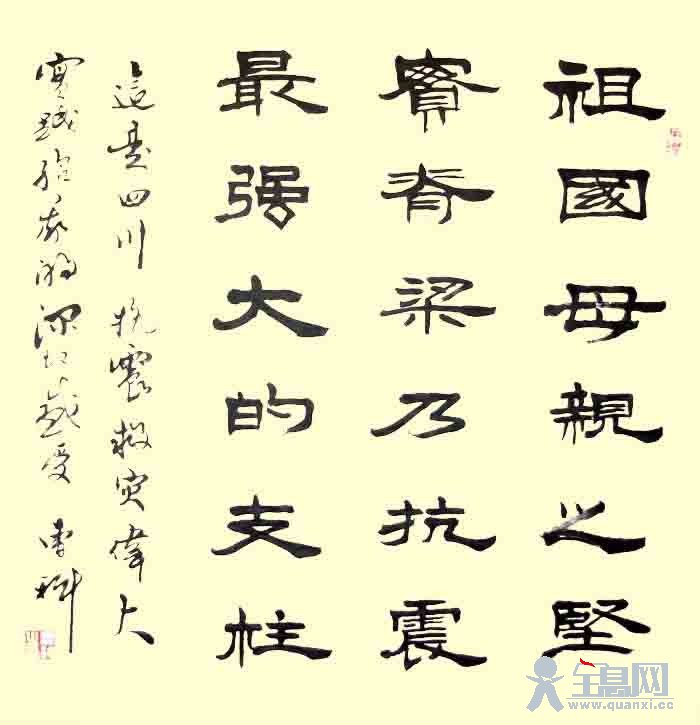 祖國母親之堅
實脊梁乃抗震
最强大的支柱
這是四川抗震救灾偉大
實踐給我的深切感受
全息网
www.quanxi.cc